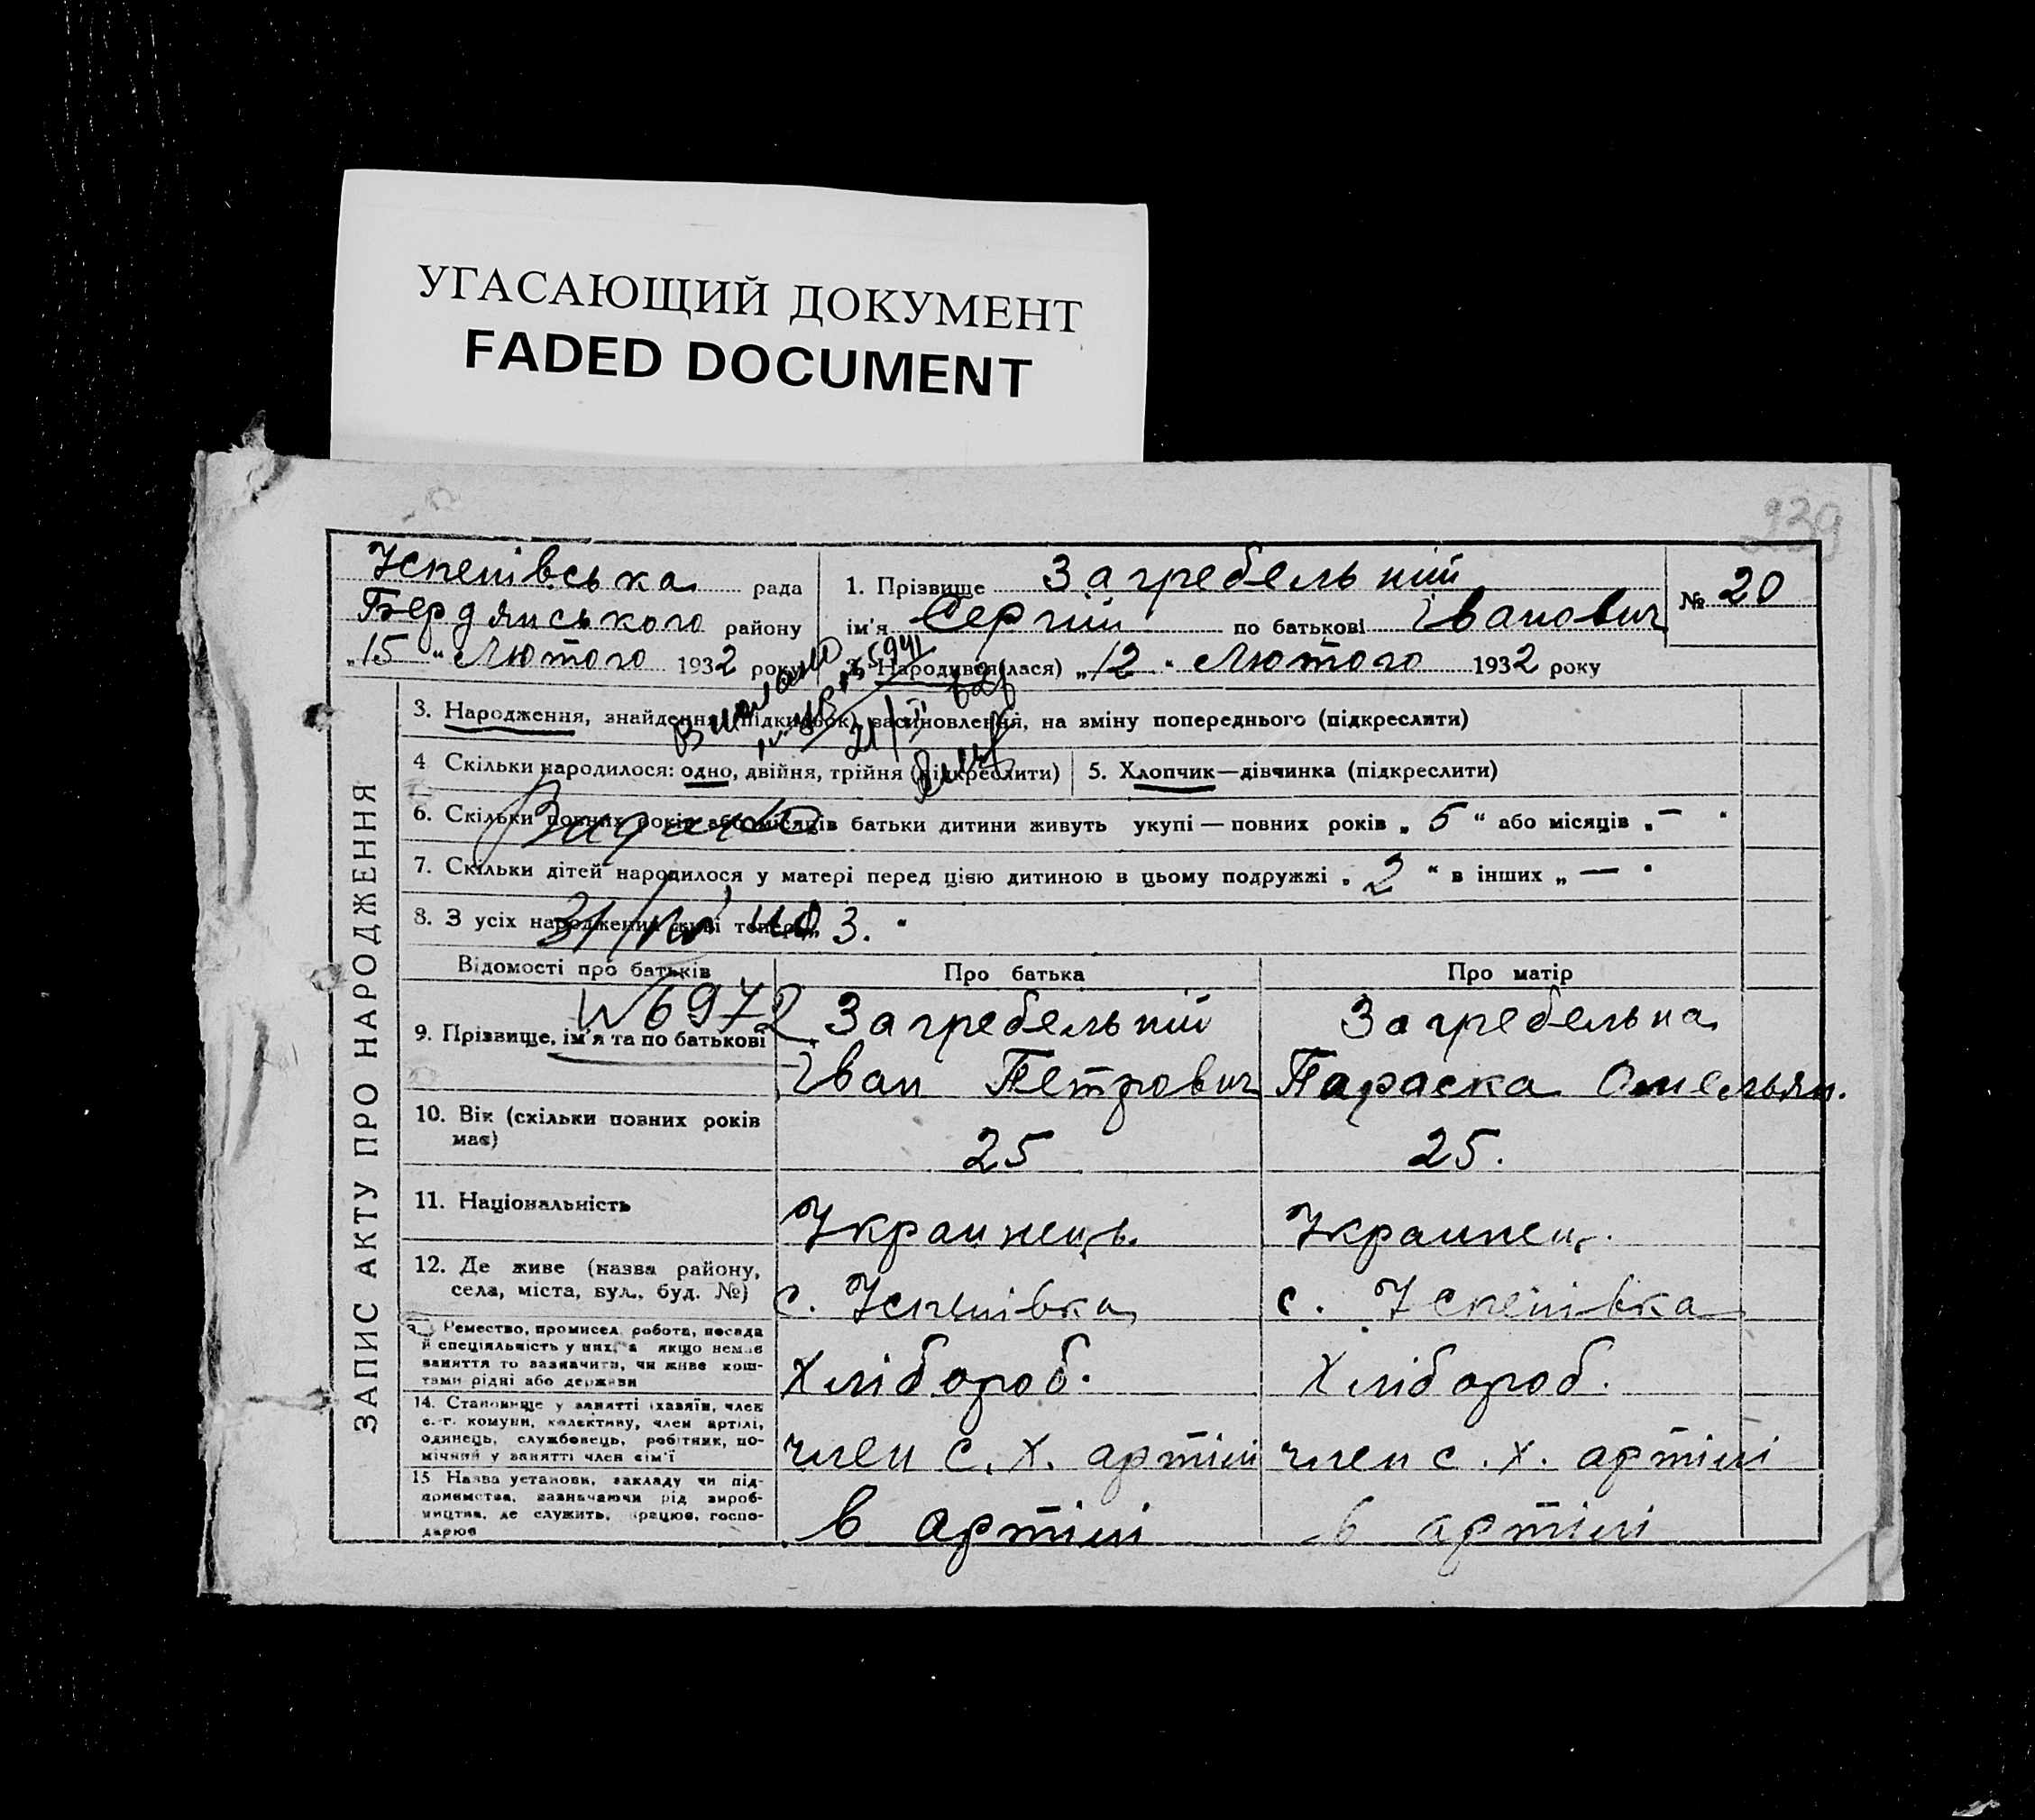 УГАСАЮЩИЙ ДОКУМЕНТ
FADED DOCUMENT
239
Успенівська рада
Бердянського району
„15 " Лютого 1932 року
1. Прізвище Загребельний
ім'я Сергій по батькові Іванович
2. Народився (лася) „12 " Лютого 1932 року
№ 20
ЗАПИС АКТУ ПРО НАРОДЖЕННЯ
3. Народження, знайдення (підкидьок), засиновлення, на зміну попереднього (підкреслити)
4 Скільки народилося: одно, двійня, трійня (підкреслити)
5. Хлопчик—дівчинка (підкреслити)
6. Скільки повних років або місяців батьки дитини живуть укупі — повних років „ 5 " або місяців „ — "
7. Скільки дітей народилося у матері перед цією дитиною в цьому подружжі „ 2 " в інших „ — "
8. З усіх народжених живі тепер „ 3. "
№ 6972
Відомості про батьків
Про батька
Про матір
9. Прізвище, ім'я та по батькові
Загребельній
Іван Петрович
Загребельна
Параска Омельян.
10. Вік (скільки повних років
має)
25
25.
11. Національність
Украинець.
Украинец.
12. Де живе (назва району,
села, міста, вул., буд. №)
с. Успенівка
с. Успенівка
Ремество, промисел, робота, посада
й спеціяльність у них, а якщо немає
заняття то зазначити, чи живе кош-
тами рідні або держави
Хлібороб.
Хлібороб.
14. Становище у занятті (хазяїн, член
с.-г. комуни, колективу, член артілі,
одинець, службовець, робітник, по-
мічний у занятті член сім'ї
член с. х. артілі
член с. х. артілі
15. Назва установи, закладу чи під-
приємства, зазначаючи рід вироб-
ництва, де служить, працює, госпо-
дарює
в артілі
в артілі